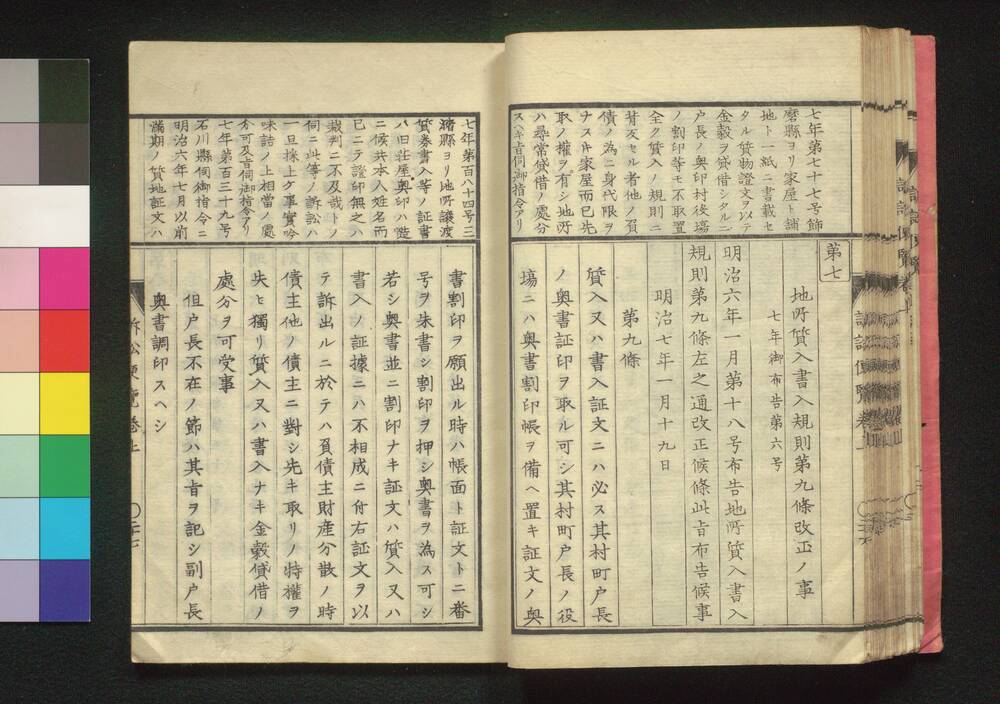 七年第七十七号飾
磨縣ヨリ家屋ト舗
地ト一紙ニ書載セ
タル貸物證文ヲ以テ
金穀ヲ貸借シタルニ
戸長ノ奥印村役場
ノ割印等モ不取置
全ク質入ノ規則ニ
背戻セル者他ノ負
債ノ為ニ身代限ヲ
ナストキ家屋而已先
取ノ權ヲ有シ地所
ハ尋常貸借ノ處分
第七
地所質入書入規則第九條改正ノ事
七年御布告第六号
明治六年一月第十八号布告地所質入書入
規則第九條左之通改正候條此旨布告候事
明治七年一月十九日
第九條
質入又ハ書入証文ニハ必ス其村町戸長
ノ奥書証印ヲ取ル可シ其村町戸長ノ役
場ニハ奥書割印帳ヲ備ヘ置キ証文ノ奥
七年第百八十四号三
潴縣ヨリ地所譲渡
質券書入等ノ証書
ハ旧庄屋奥印ハ有
ニ候共本人姓名而
已ニテ證印無之ハ
裁判ニ不及哉トノ
伺ニ此等ノ訴訟ハ
一旦採上ケ事實吟
味詰ノ上相當ノ處
分可及旨伺御指令アリ
七年第百三十九号
石川縣伺御指令ニ
明治六年七月以前
満期ノ質地証文ハ
書割印ヲ願出ル時ハ帳面ト証文トニ番
号ヲ朱書シ割印ヲ押シ奥書ヲ為ス可シ
若シ奥書並ニ割印ナキ証文ハ質入又ハ
書入ノ証據ニハ不相成ニ付右証文ヲ以
テ訴出ルニ於テハ負債主財産分散ノ時
債主他ノ債主ニ對シ先キ取リノ特權ヲ
失ヒ獨リ質入又ハ書入ナキ金穀貸借ノ
處分ヲ可受事
但戸長不在ノ節ハ其旨ヲ記シ副戸長
奥書調印スヘシ
訴訟便覧